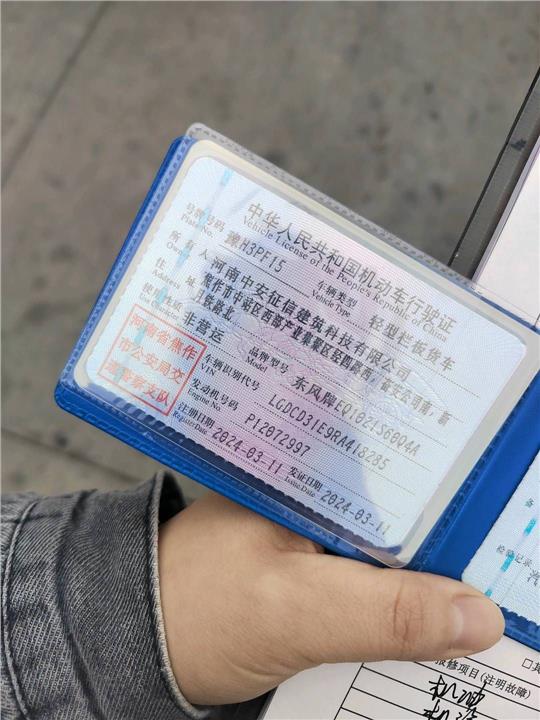 中华人民共和国机动车行驶证
Vehicle License of the People's Republic of China
号牌号码 豫H3PF15 车辆类型 轻型栏板货车
Plate No. Vehicle Type
所有人 河南中安征信建筑科技有限公司
Owner
住址 焦作市中站区西部产业集聚区经四路西,
Address
江铁路北
使用性质 非营运 品牌型号 东风牌EQ1021S60Q4A
Use Character Model
河南省焦作
市公安局交
通警察支队
车辆识别代号 LGDCD31E9RA418285
VIN
发动机号码 P12072997
Engine No.
注册日期 2024-03-11 发证日期 2024-03-11
Register Date Issue Date
备
检验记录
报修项目(注明故障) □其
机油
机